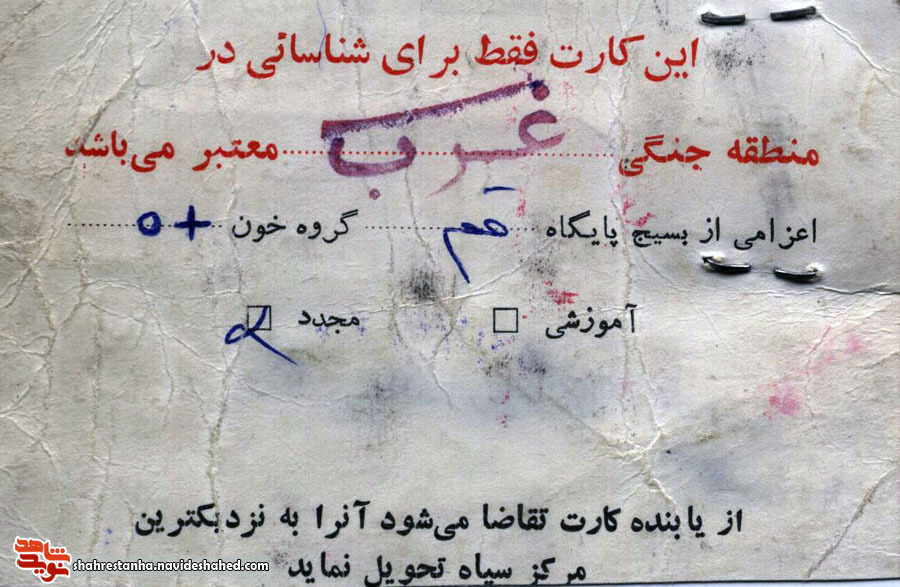 این کارت فقط برای شناسائی در
منطقه جنگی غرب معتبر می‌باشد
اعزامی از بسیج پایگاه قم گروه خون o+
آموزشی □ مجدد □
از یابنده کارت تقاضا می‌شود آنرا به نزدیکترین
مرکز سپاه تحویل نماید
نوید شاهد
shahrestanha.navideshahed.com